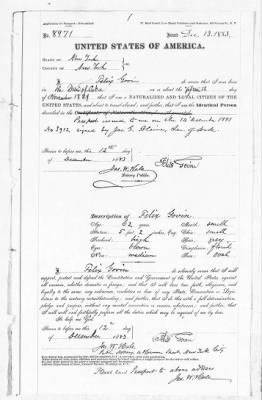 No. 8971
Issued Dec. 13. 1883.
UNITED STATES OF AMERICA.
STATE OF New York
COUNTY OF New York
I, Felix Govin do swear that I was born
in
on or about the
that I am a NATURALIZED AND LOYAL CITIZEN OF THE
UNITED STATES, and about to travel abroad; and further, that I am the Identical Person
described in the
Passport issued to me on the 14 December 1881
No 2912, signed by Jas. G. Blaine, Sec of State
Sworn to before me, this 12th day
of December 1883
Jas. W. Hale
Notary Public.
Felix Govin
Description of Felix Govin
Age: 52 years
Mouth: small
Stature: 5 feet 2 inches, Eng.
Chin: small
Forehead: high
Hair: grey
Eyes: brown
Complexion: florid
Nose: medium
Face: oval
I, Felix Govin do solemnly swear that I will
support, protect and defend the Constitution and Government of the United States against
all enemies, whether domestic or foreign; and that I will bear true faith, allegiance, and
loyalty to the same, any ordinance, resolution or law of any State, Convention or Legis-
lature to the contrary notwithstanding; and further, that I do this with a full determination,
pledge and purpose, without any mental reservation or evasion whatsoever; and further, that
I will well and faithfully perform all the duties which may be required of me by law.
So help me God.
Sworn to before me, this 12 day
of December 1883
Felix Govin
Jas. W. Hale
Please send Passport to above address
Jas. W. Hale